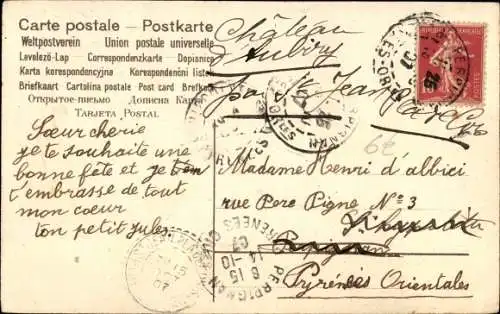 Carte postale – Postkarte
Weltpostverein Union postale universelle
Levelező-Lap – Correspondenzkarte Dopisnice
Karta korespondencyjna Korespondenční lístek
Briefkaart Cartolina postale Post card Brefkort
Открытое письмо Дописна Карта
TARJETA POSTAL
Château
d'Aubiry
par St Jean
Sœur cherie
je te souhaite une
bonne fête et je
t'embrasse de tout
mon cœur
ton petit Jules
6E
Madame Henri d'albici
rue Pere Pigne No 3
Perpignan
Pyrénées Orientales
PERPIGNAN
PYRENEES
8 15
14-10
07